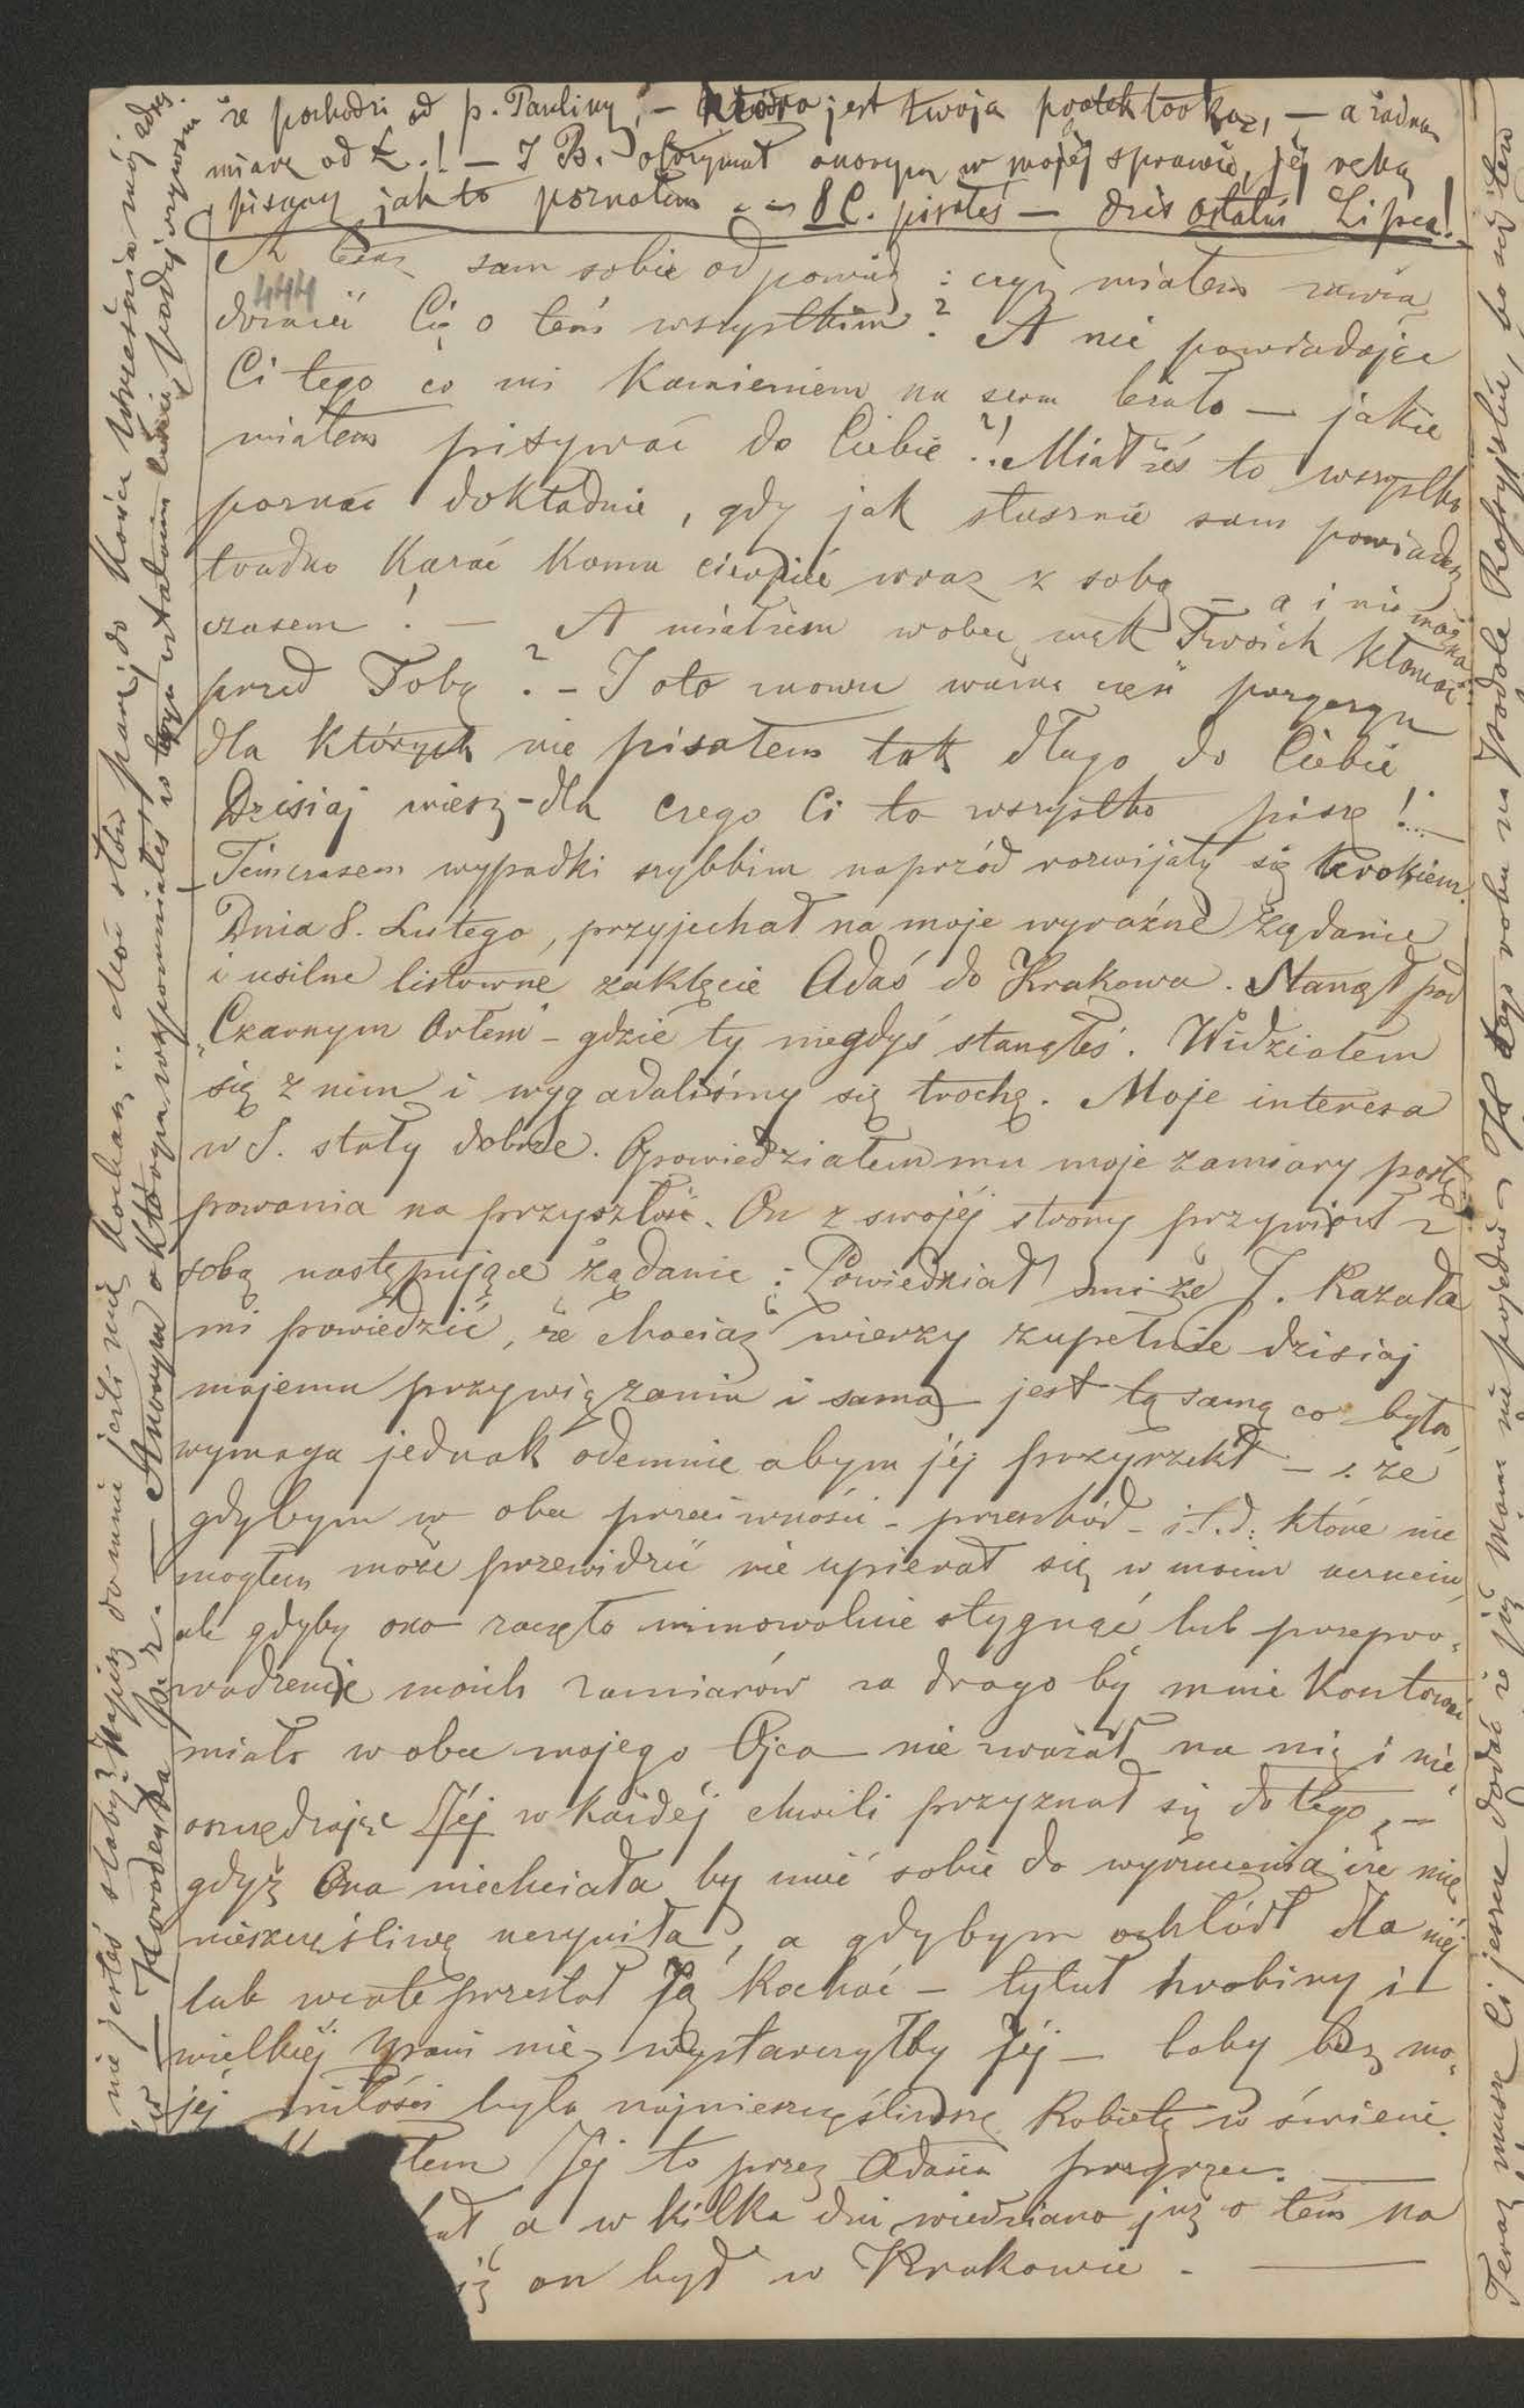 że pochodzi od p. Pauliny, — która jest twoja protektorka, — a żadną
miarą od Ł.! — I B. otrzymał anonym w mojéj sprawie, jéj ręką
pisany jak to poznałem 8 C. pisałeś — dziś ostatni Lipca!
A teraz sam sobie odpowiedz: czyż miałem zawia
444
domić Cię o tém wszystkiém? A nie powiadając
Ci tego co mi kamieniem na sercu leżało — jakie
miałem pisywać do Ciebie?! Miałżeś to wszystko
poznać dokładnie, gdy jak słusznie sam powiadasz
trudno kazać komu cierpieć wraz z sobą — a i nie można
czasem! — A miałżem wobec mąk Twoich kłamać
przed Tobą? — I oto znowu ważna część przyczyn
dla których nie pisałem tak długo do Ciebie
Dzisiaj wiesz — dla czego Ci to wszystko piszę!...
Témczasem wypadki szybkim naprzód rozwijały się krokiem.
Dnia 8. Lutego, przyjechał na moje wyraźne żądanie
i usilne listowne zaklęcie Adaś do Krakowa. Stanął pod
„Czarnym Orłem" — gdzie ty niegdyś stanąłeś. Widziałem
się z nim i wygadaliśmy się trochę. Moje interesa
w S. stały dobrze. Opowiedziałem mu moje zamiary postę
powania na przyszłość. On z swojéj strony przywiózł z
sobą następujące żądanie: Powiedział mi że J. kazała
mi powiedzieć, że chociaż wierzy zupełnie dzisiaj
mojemu przywiązaniu i sama jest tą samą co była,
wymaga jednak odemnie abym jéj przyrzekł — że
gdybym w obec przeciwności — przeszkód — i.t.d. które nie
mogłem może przewidzieć nie upierał się w moim uczuciu,
ale gdyby ono zaczęło mimowolnie stygnąć lub przepro-
wadzenie moich zamiarów za drogo by mnie kosztować
miało w obec mojego Ojca — nie zważał na nią i nie
oszczędzając Jéj w każdéj chwili przyznał się do tego, —
gdyż Ona niechciała by mieć sobie do wyrzucenia iże mię
nieszczęśliwą uczyniła, a gdybym ochłódł dla niéj
lub wcale przestał Ją kochać — tytuł hrabiny i t
wielkiéj pani nie wystarczyłby Jéj — boby bez mo-
jéj miłości była najnieszczęśliwszą kobietą w świecie.
łem Jéj to przez Adasia przyrzec. —
hał, a w kilka dni wiedziano już o tém na
iż on był w Krakowie. —
nie jesteś słaby? Napisz do mnie jeśli mię kochasz .. choć słów parę, do końca Września mój adres.
Anonym o którym wspomniałeś w
Teraz muszę Ci jeszcze dodać że już Mam nie pojedzie tego roku na Podole